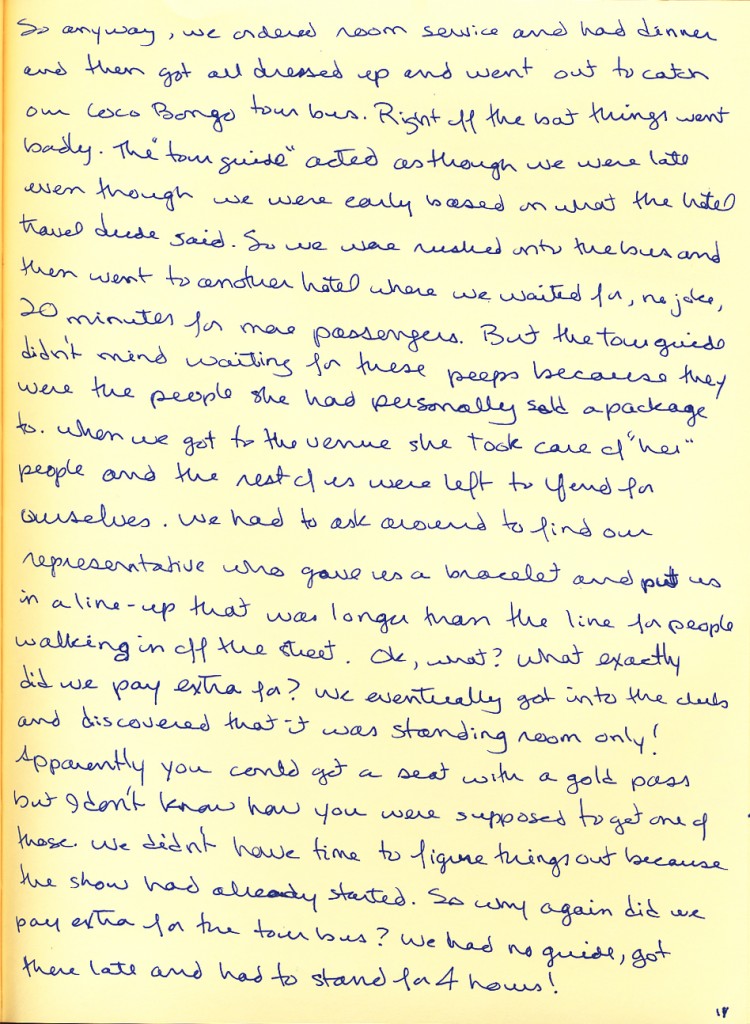 So anyway, we ordered room service and had dinner
and then got all dressed up and went out to catch
our Coco Bongo tour bus. Right off the bat things went
badly. The "tour guide" acted as though we were late
even though we were early based on what the hotel
travel dude said. So we were rushed onto the bus and
then went to another hotel where we waited for, no joke,
20 minutes for more passengers. But the tour guide
didn't mind waiting for these peeps because they
were the people she had personally sold a package
to. When we got to the venue she took care of "her"
people and the rest of us were left to fend for
ourselves. We had to ask around to find our
representative who gave us a bracelet and put us
in a line-up that was longer than the line for people
walking in off the street. Ok, what? What exactly
did we pay extra for? We eventually got into the club
and discovered that it was standing room only!
Apparently you could get a seat with a gold pass
but I don't know how you were supposed to get one of
those. We didn't have time to figure things out because
the show had already started. So why again did we
pay extra for the tour bus? We had no guide, got
there late and had to stand for 4 hours!